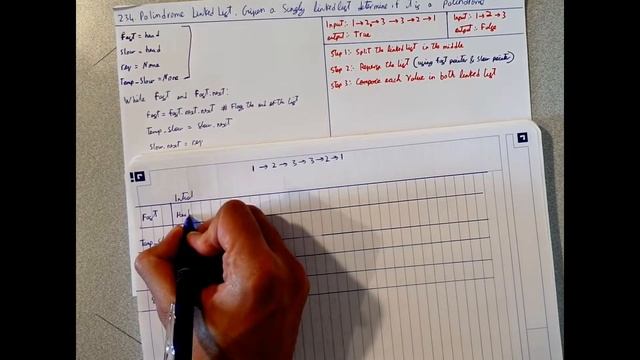 234. Palindrome Linked List. Given a Singly linked list determine if it is a palindrome
Input:- 1→2→3→3→2→1
output:- True
Input:- 1→2→3
output:- False
Fast = head
slow = head
rev = None
Temp_slow = None
While fast and fast.next:
Fast = fast.next.next # Flag the end of the list
Temp_slow = slow.next
slow.next = rev
Step 1:- Split the linked list in the middle
Step 2:- Reverse the list (using fast pointer & slow pointer)
Step 3:- Compare each value in both linked list
1→2→3→3→2→1
Initial
Fast
Head
Temp_sl